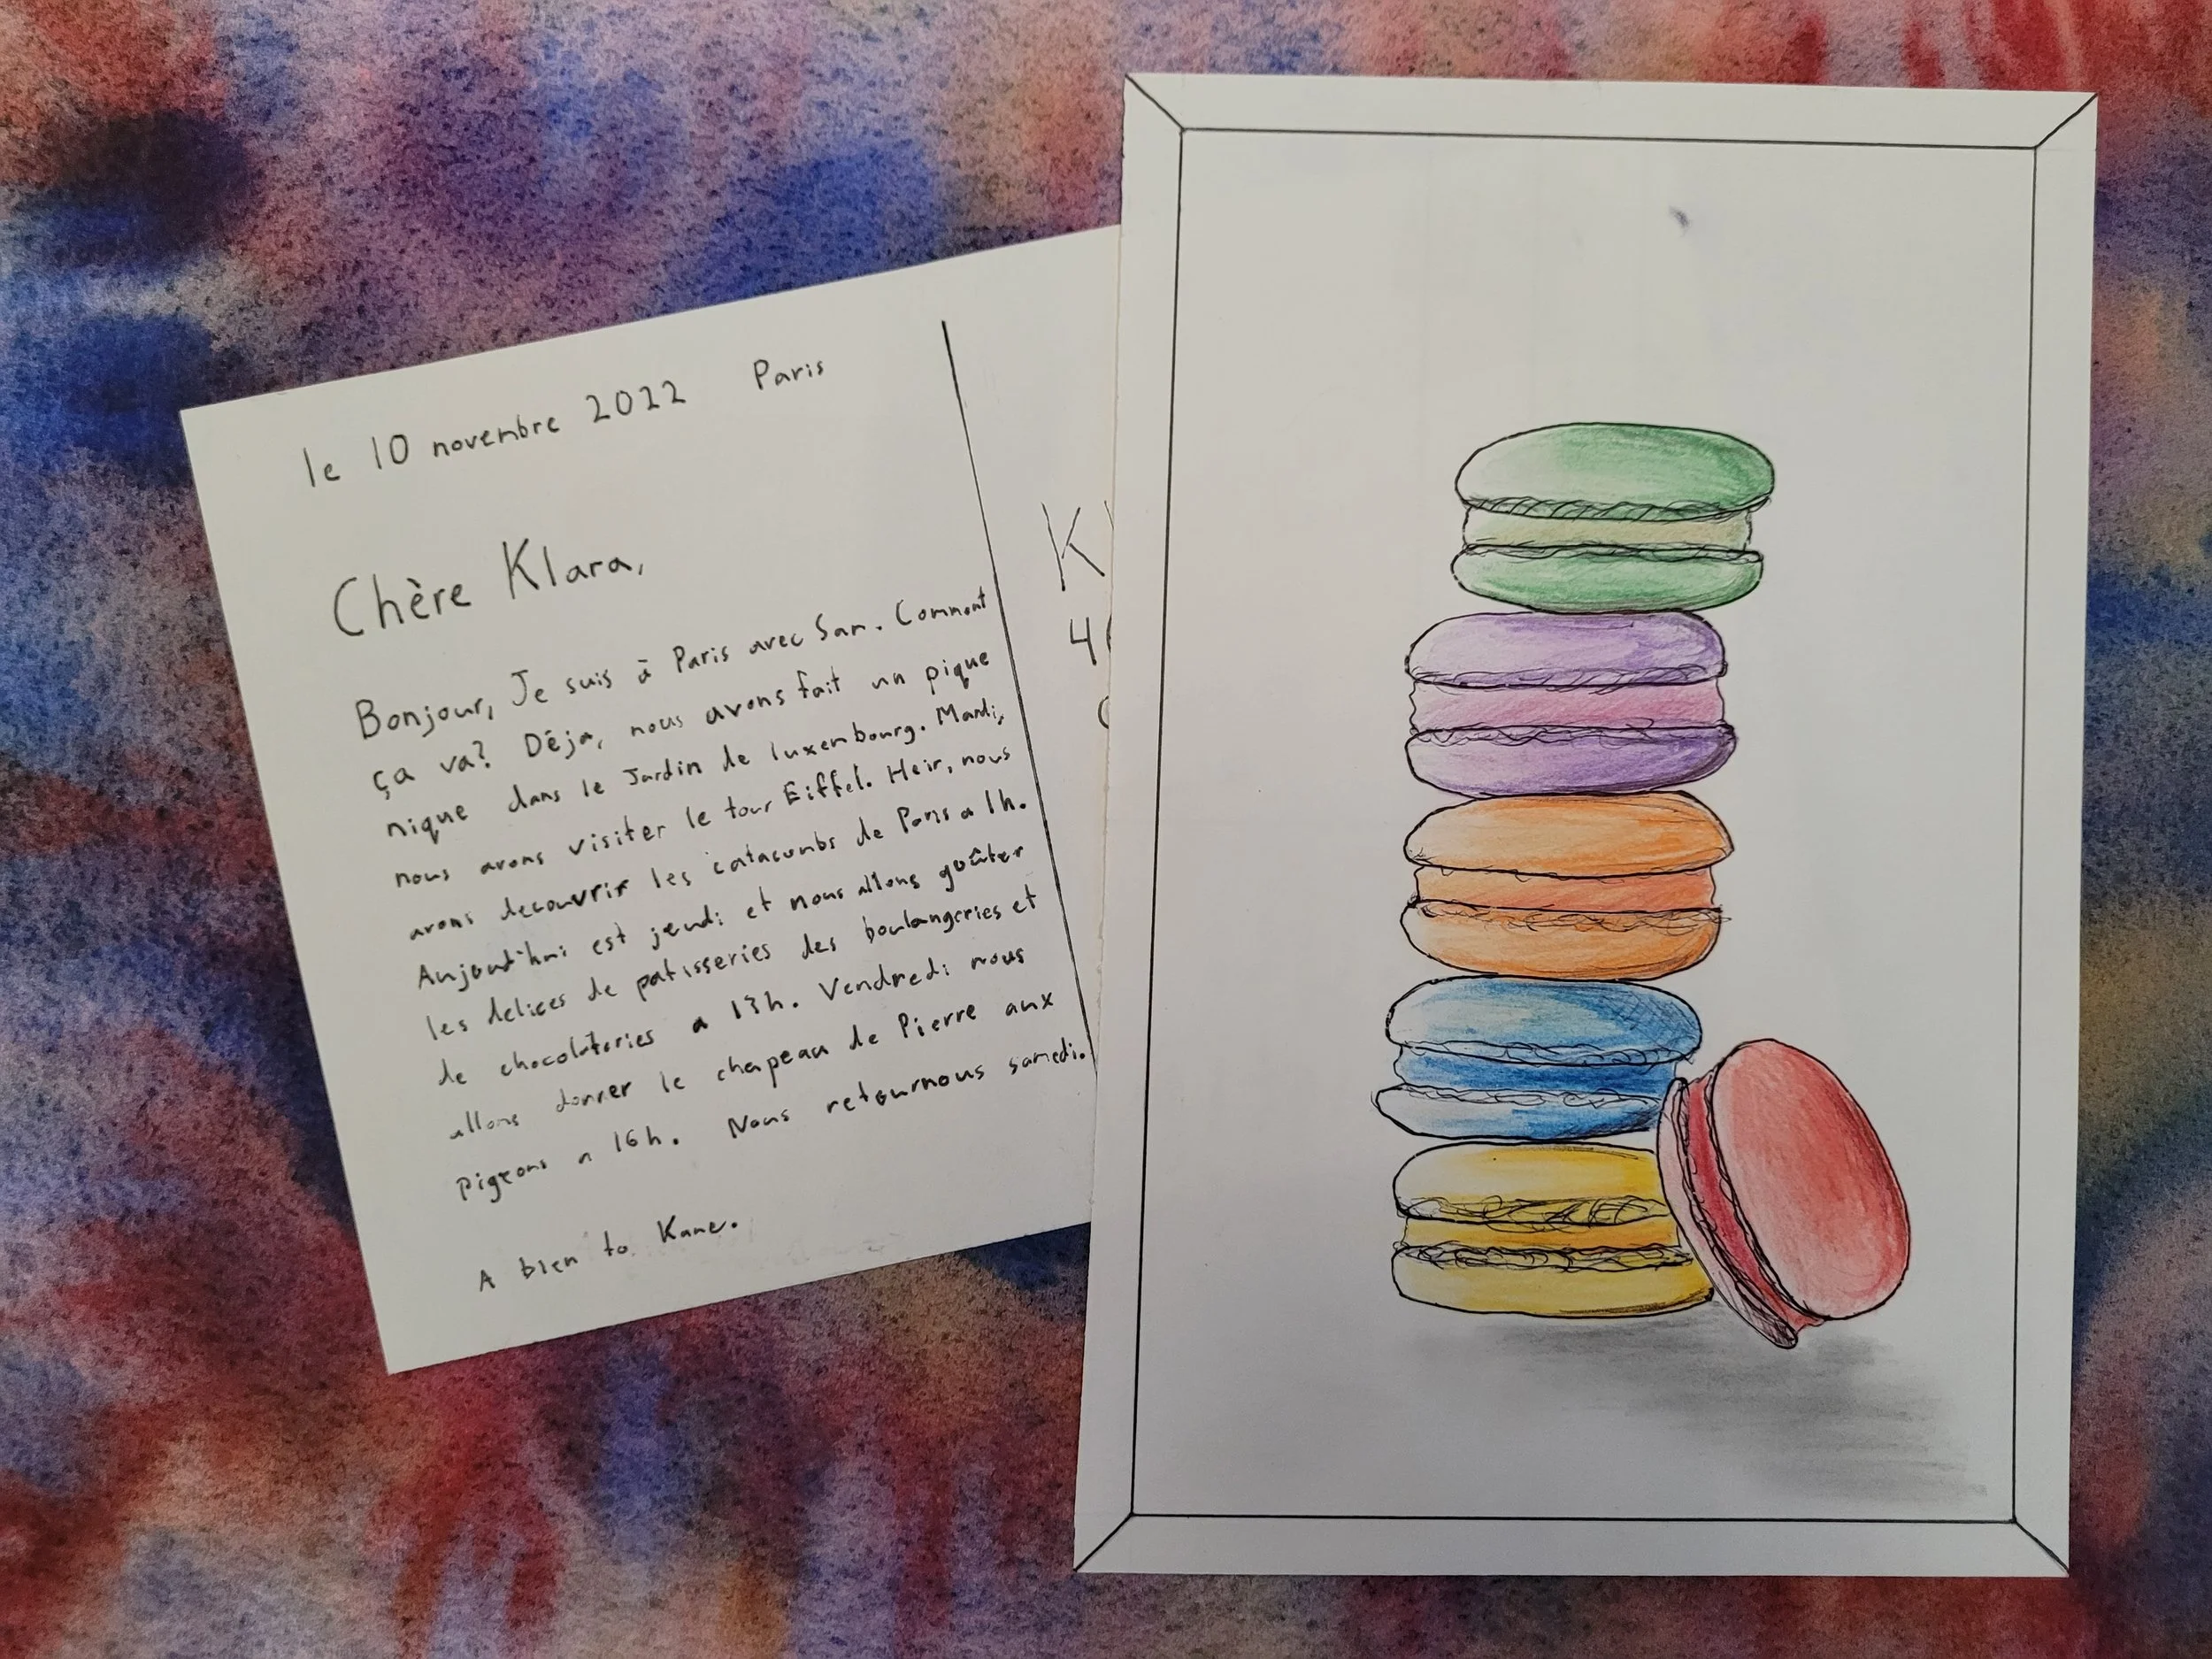 le 10 novembre 2022 Paris
Chère Klara,
Bonjour, Je suis à Paris avec Sam. Comment
ça va? Déja, nous avons fait un pique
nique dans le Jardin de luxembourg. Mardi,
nous avons visiter le tour Eiffel. Heir, nous
avons decouvrir les catacombs de Paris a 1h.
Aujourd'hui est jeudi et nous allons goûter
les delices de patisseries des boulangeries et
de chocolateries a 13h. Vendredi nous
allons donner le chapeau de Pierre aux
pigeons a 16h. Nous retournous samedi.
A bien to Kane.
K
4